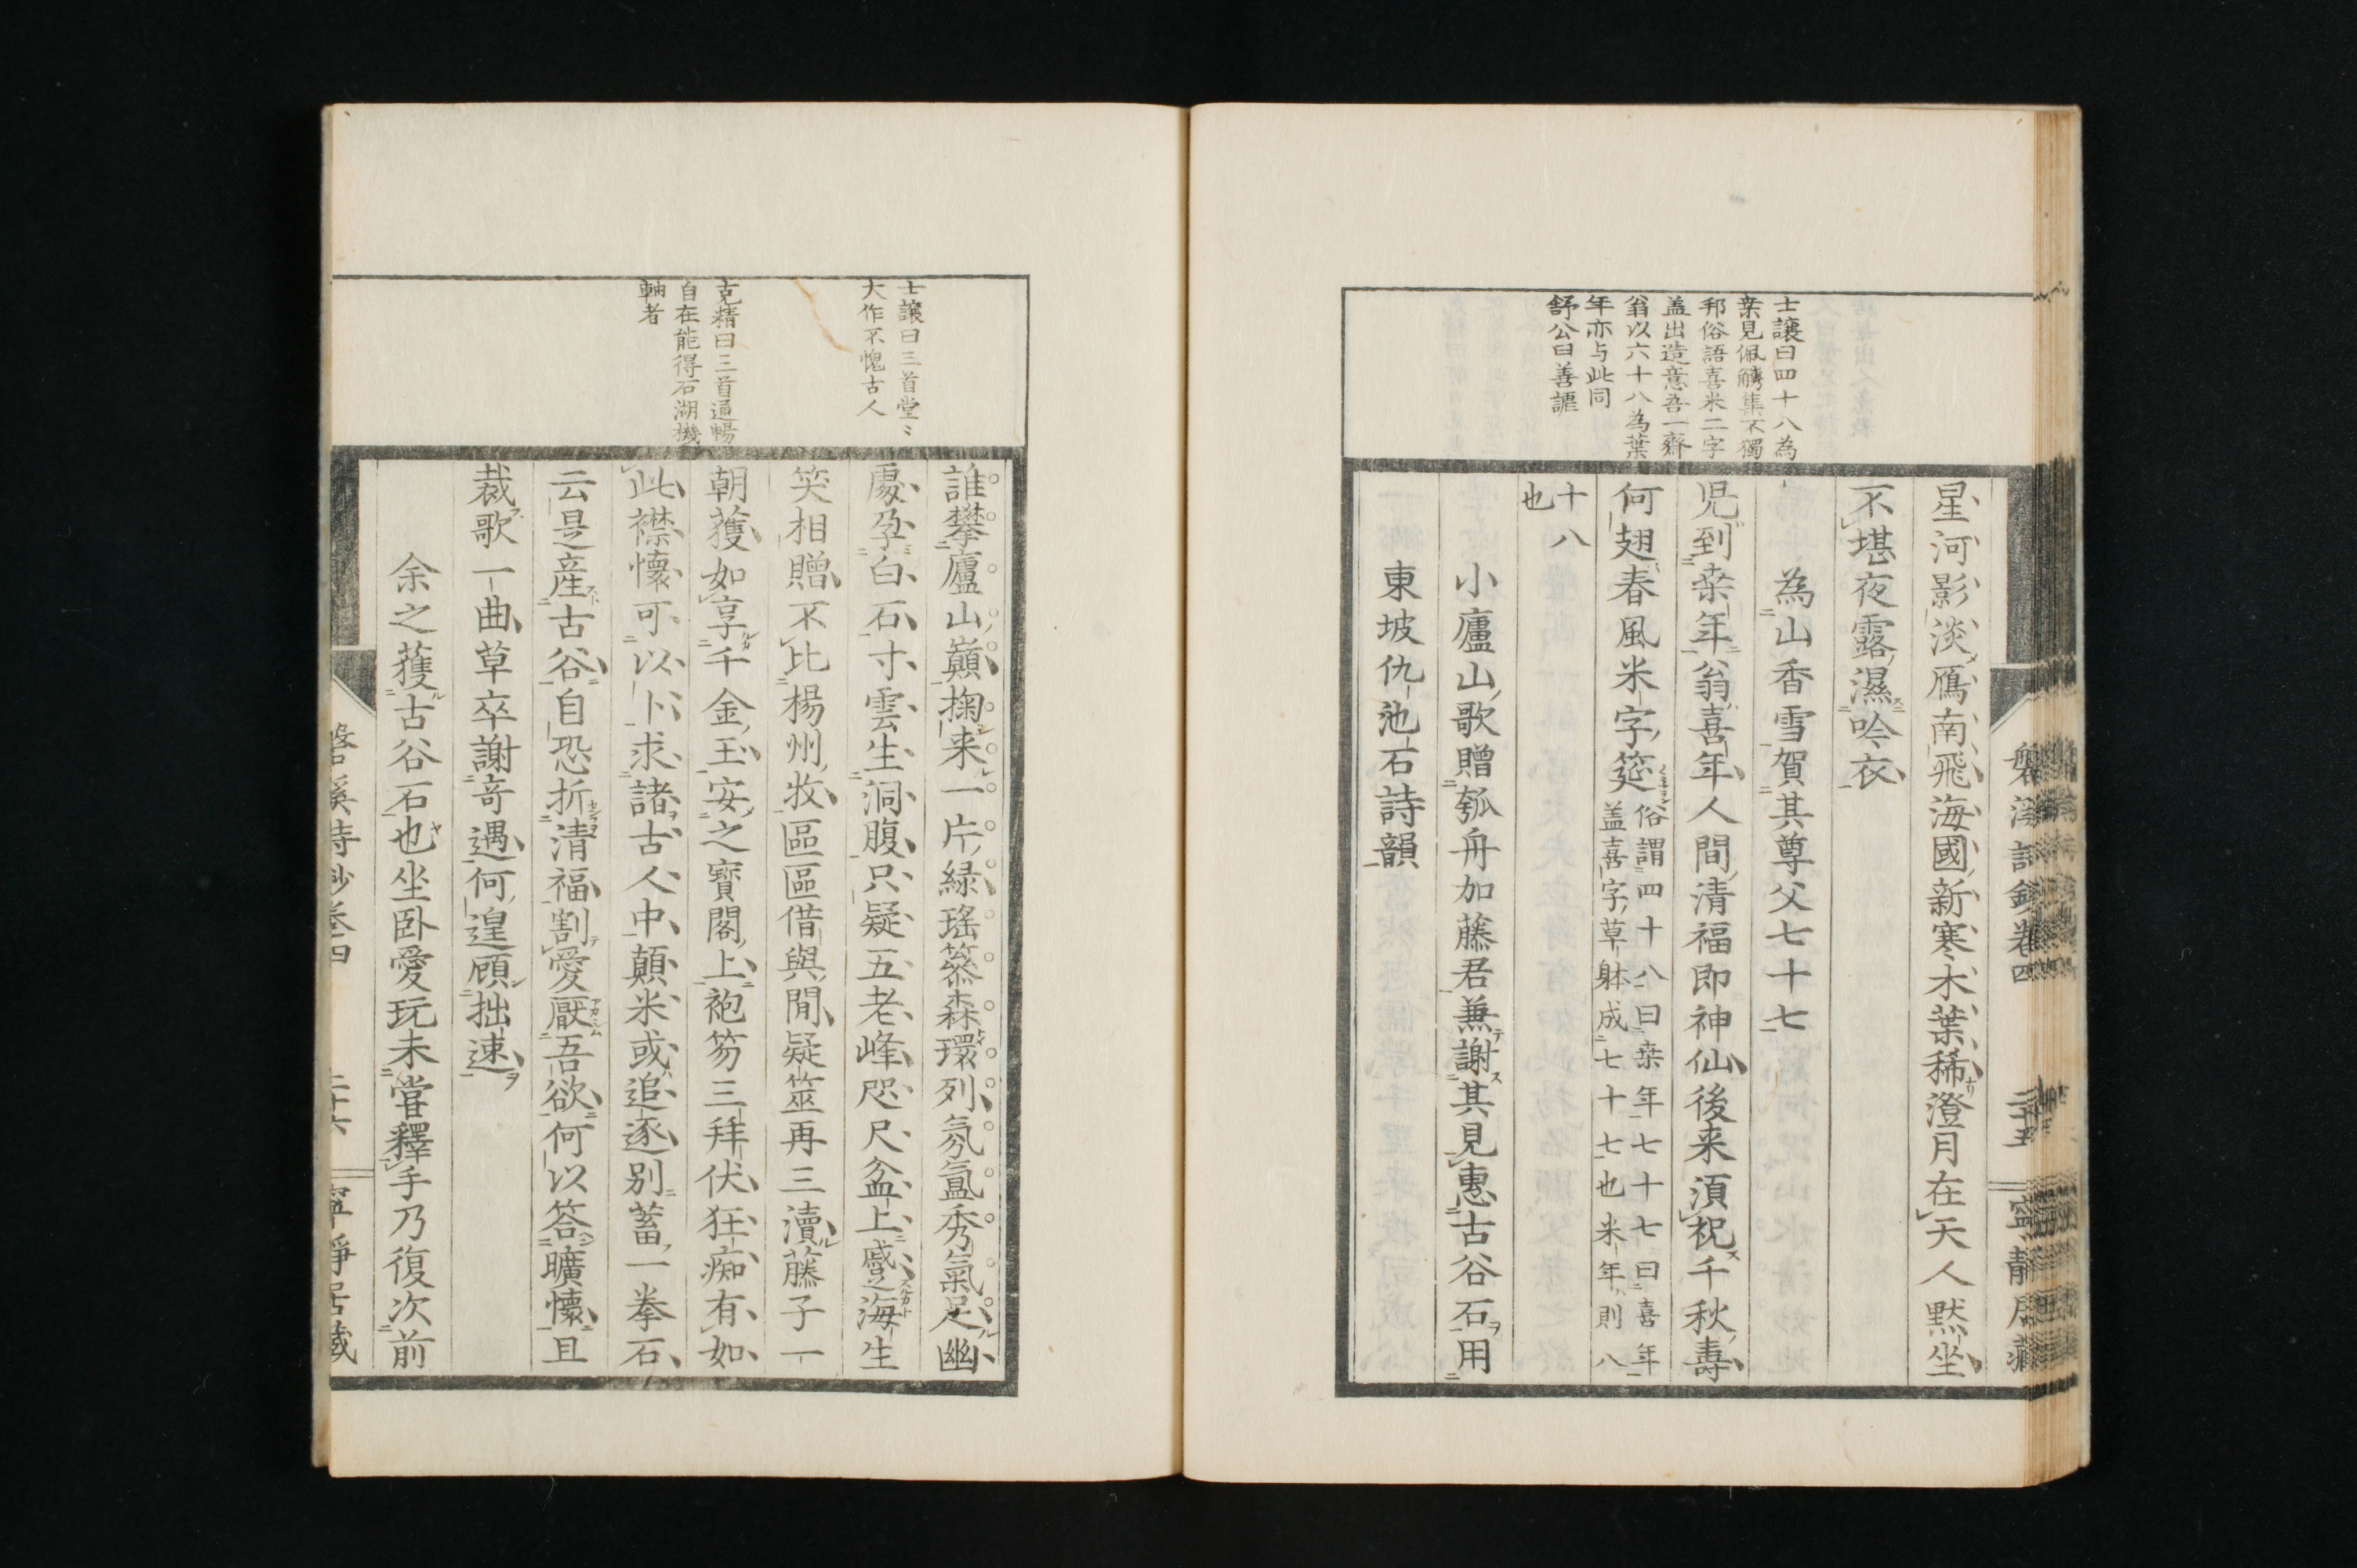 士讓曰四十八為
桒見佩觿集不獨
邦俗語喜米二字
盖出造意吾一齋
翁以六十八為葉
年亦与此同
舒公曰善謔
星河影淡鴈南飛海國新寒木葉稀澄月在天人默坐
不堪夜露濕吟衣
為山香雪賀其尊父七十七
児到桒年翁喜年人間清福即神仙後来須祝千秋壽
何翅春風米字筵俗謂四十八曰桒年七十七曰喜年
盖喜字草躰成七十七也米年則八
十八
也
小廬山歌贈瓠舟加藤君兼謝其見惠古谷石用
東坡仇池石詩韻
磐溪詩鈔卷四
二十五
寧靜居藏
士讓曰三首堂〻
大作不愧古人
克精曰三首通暢
自在能得石湖機
軸者
誰攀廬山巔掬来一片緑瑤篸森環列氛氳秀氣足幽
處孕白石寸雲生洞腹只疑五老峰咫尺盆上蹙海生
笑相贈不比楊州牧區區借與閒疑筮再三瀆藤子一
朝獲如享千金玉安之寳閣上袍笏三拜伏狂痴有如
此襟懐可以卜求諸古人中顛米或追逐别蓄一拳石
云是産古谷自恐折清福割愛厭吾欲何以答曠懐且
裁歌一曲草卒謝竒遇何遑顧拙速
余之獲古谷石也坐卧愛玩未甞釋手乃復次前
磐溪詩鈔卷四
二十六
寧靜居藏